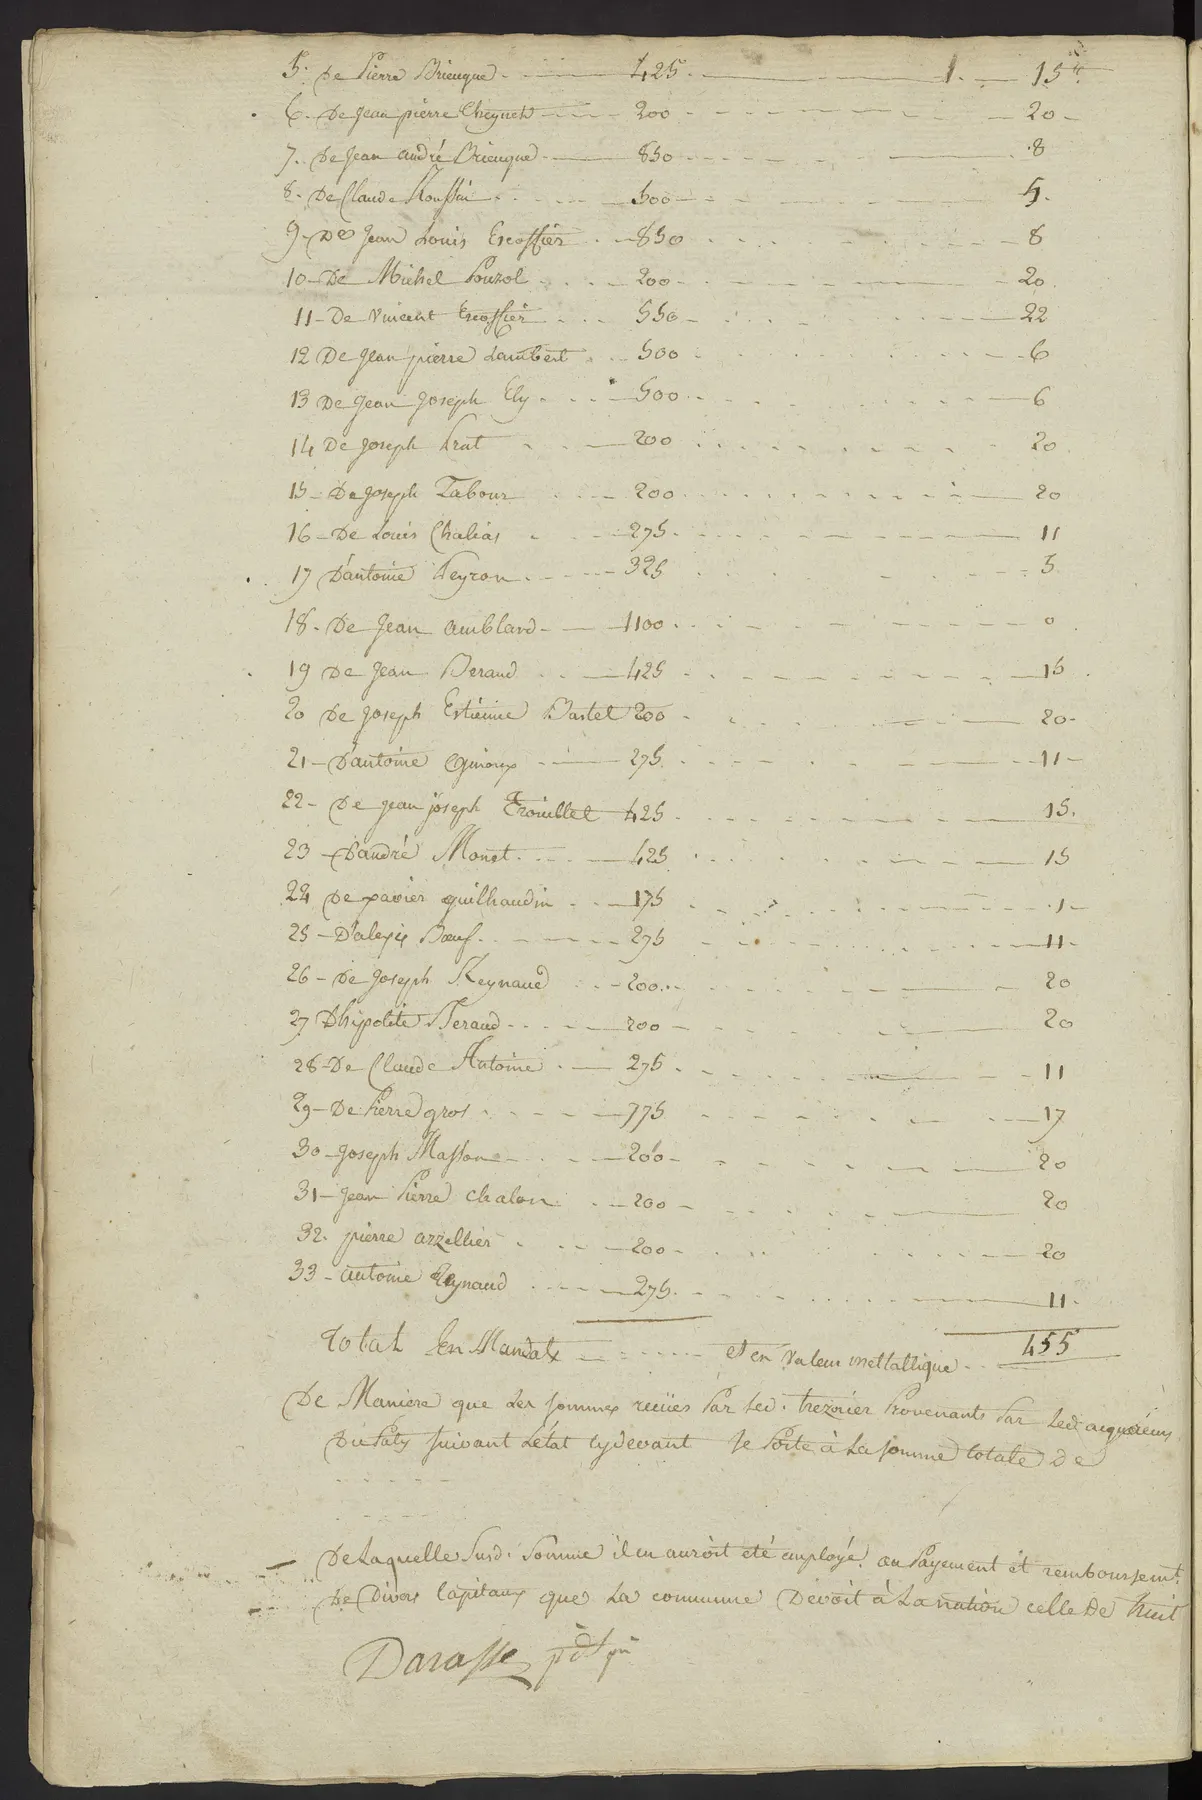 5. De Pierre Brieugne 425. 1. 15
6. De Jean pierre Cheynet 200 20
7. De Jean andré Brieugne 850 8
8. De Claude Roussin 500 4.
9. De Jean Louis Escoffier 850 8
10 De Michel Pouzol 200 20.
11 De vincent Escoffier 550 22
12 De Jean pierre Lambert 500 6
13 De Jean Joseph Ely 500 6
14 De Joseph Prat 200 20
15 De Joseph Tabour 200 20
16 De Louis Chalias 275. 11
17 D'antoine Peyron 325 5.
18. De Jean amblard 1100 0
19 De Jean Beraud 425 15
20 De Joseph Estienne Bastel 200 20
21 D'antoine Ginoux 275. 11
22 De Jean joseph Trouillet 425 15.
23 D'andré Monet 425 15
24 De xavier guilhaudin 175 1
25 D'alexis Bœuf 275 11
26 De Joseph Reynaud 200 20
27 D'hipolite Beraud 200 20
28 De Claude Antoine 275 11
29 De Pierre gros 775 17
30 Joseph Masson 200 20
31 Jean Pierre chalon 200 20
32. pierre arzellier 200 20
33 antoine Reynaud 275. 11.
Total En Mandats et en valeur mettallique 455
De Maniere que Les sommes reçües Par led. trezorier Provenants Par Lesd. acquéreurs
Du Paty suivant L'état cy devant se Porte à La somme totale de
De Laquelle Susd. Somme il en auroit eté employé au Payement et remboursemt.
De Divers Capitaux que La commune Devoit à La nation celle de huit
Darasse pdt